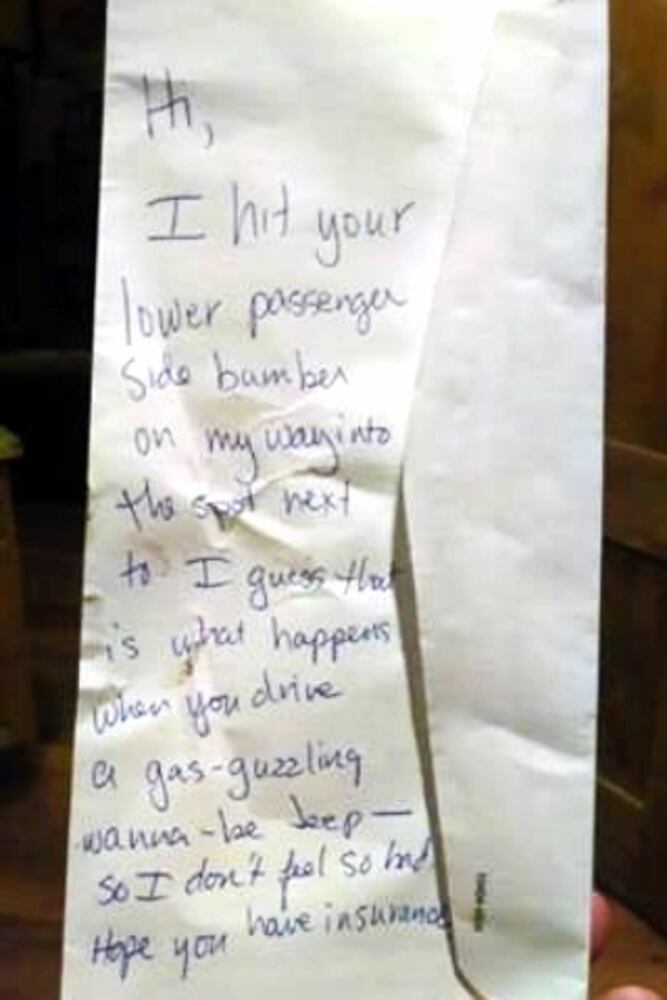 Hi,
I hit your
lower passenger
side bumber
on my way into
the spot next
to I guess that
is what happens
when you drive
a gas-guzzling
wanna-be Jeep—
so I don't feel so bad
Hope you have insurance